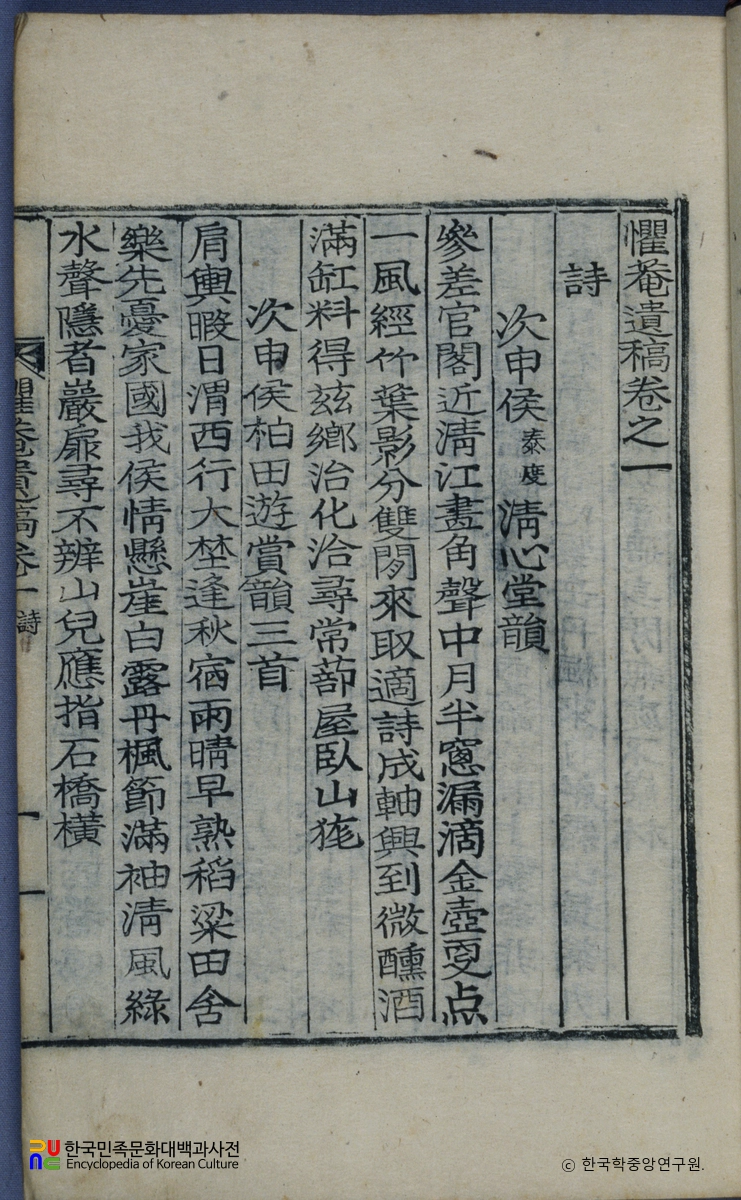 懼菴遺稿卷之一
詩
次申侯泰度淸心堂韻
參差官閣近淸江畫角聲中月半窓漏滴金壺更点
一風經竹葉影分雙閒來取適詩成軸興到微醺酒
滿缸料得玆鄕治化洽尋常蔀屋臥山狵
次申侯柏田遊賞韻三首
肩輿暇日渭西行大埜逢秋宿雨晴早熟稻粱田舍
樂先憂家國我侯情懸崖白露丹楓節滿袖淸風綠
水聲隱者巖扉尋不辨山兒應指石橋橫
懼菴遺稿卷一 詩
一
한국민족문화대백과사전
Encyclopedia of Korean Culture
ⓒ 한국학중앙연구원.